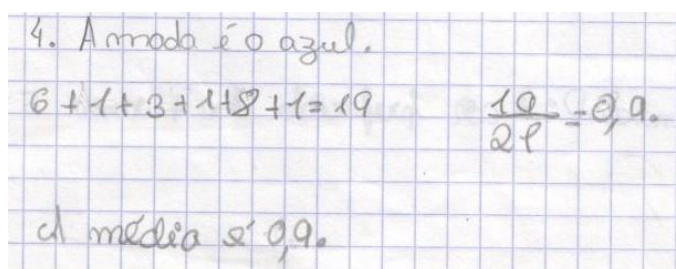 4. A moda é o azul.
6 + 1 + 3 + 1 + 8 + 1 = 19
19/21 = 0,9.
A média é 0,9.